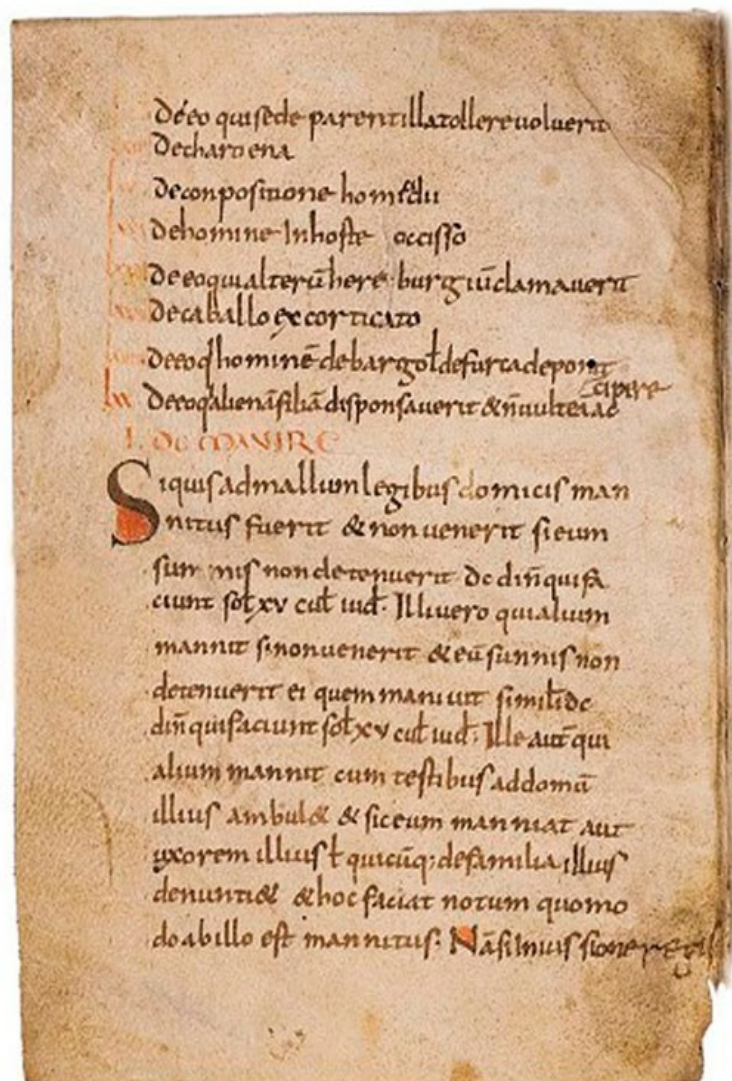 De eo qui se de parentilla tollere voluerit
De charoena
De conpositione homĩcdii
De homine In hoste occisso
De eo qui alterũ here burgiũ clamaverit
De caballo excorticato
De eo q̄ hominẽ de bargo ł de furca deponit
De eo q̄ alienã filiã disponsaverit & ñ vult eã ac
cipere
I. DE MANIRE
Si quis ad mallum legibus domicis man
nitus fuerit & non venerit si eum
sunnis non detenuerit dc diñ qui fa
ciunt sol xv cul iud. Illi vero qui alium
mannit si non venerit & eũ sunnis non
detenuerit ei quem manivit simili dc
diñ qui faciunt sol xv cul iud. Ille aut̃ qui
alium mannit cum testibus ad domũ
illius ambul& & sic eum manniat aut
uxorem illius ł quicũq; de familia illius
denunti& & hoc faciat notum quomo
do ab illo est mannitus. Nã si In iussione regis